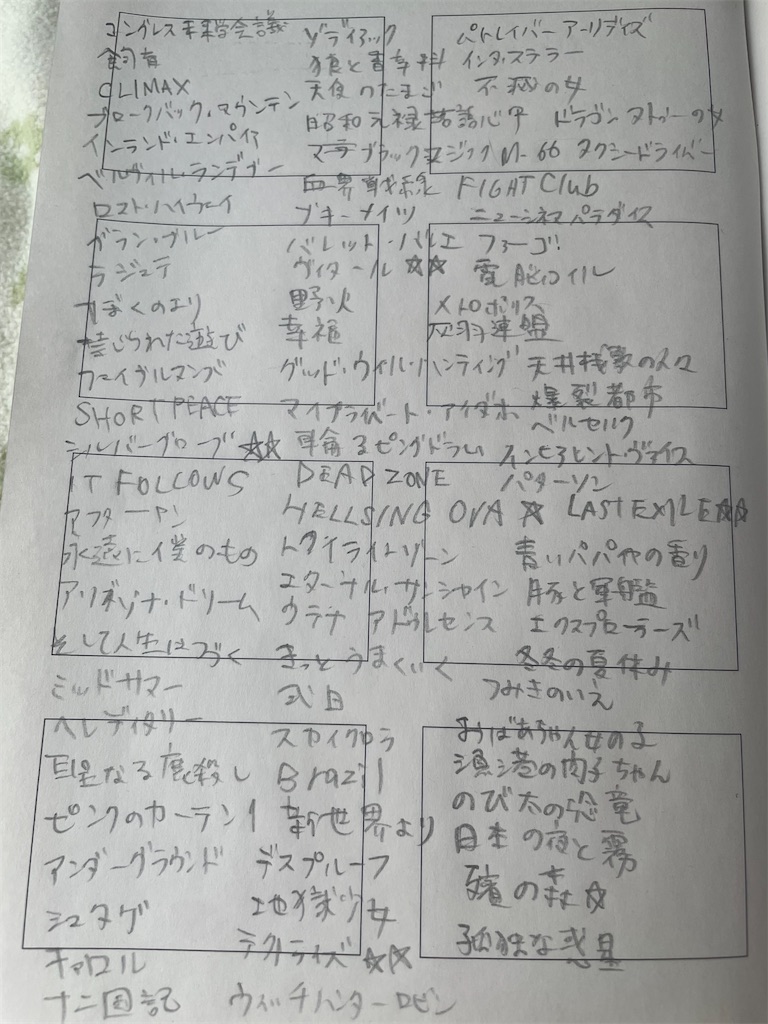 コングレス未来学会議
飼育
CLIMAX
ブロークバック・マウンテン
インランド・エンパイア
ベルヴィル・ランデブー
ロスト・ハイウェイ
グラン・ブルー
ラジュテ
ぼくのエリ
禁じられた遊び
フェイブルマンズ
SHORT PEACE
シルバーグローブ ☆☆
IT FOLLOWS
アフターヤン
永遠に僕のもの
アリゾナ・ドリーム
そして人生はつづく
ミッドサマー
ヘレディタリー
聖なる鹿殺し
ピンクのカーテン1
アンダーグラウンド
シュタゲ
キャロル
十二国記
ゾディアック
狼と香辛料
天使のたまご
昭和元禄落語心中
マーラ ブラックマジック M-66
血界戦線
ブギーナイツ
バレット・バレエ
ヴィタール ☆☆
野火
幸福
グッド・ウィル・ハンティング
マイプライベート・アイダホ
輪るピングドラム
DEAD ZONE
HELLSING OVA ☆
トワイライトゾーン
エターナル・サンシャイン
ウテナ アドゥレセンス
きっとうまくいく
式日
スカイクロラ
Brazil
新世界より
デスプルーフ
地獄少女
テクノライズ ☆☆
ウィッチハンターロビン
パトレイバー アーリーデイズ
インターステラー
不滅の女
ドラゴンタトゥーの女
タクシードライバー
FIGHT Club
ニューシネマパラダイス
ファーゴ!
電脳コイル
メトロポリス
灰羽連盟
天井桟敷の人々
爆裂都市
ベルセルク
インヒアレント・ヴァイス
パターソン
LAST EXILE ☆☆
青いパパイヤの香り
豚と軍艦
エクスプローラーズ
冬冬の夏休み
つみきのいえ
おばあちゃん女の子
漁港の肉子ちゃん
のび太の恐竜
日本の夜と霧
殯の森 ☆
孤独な惑星